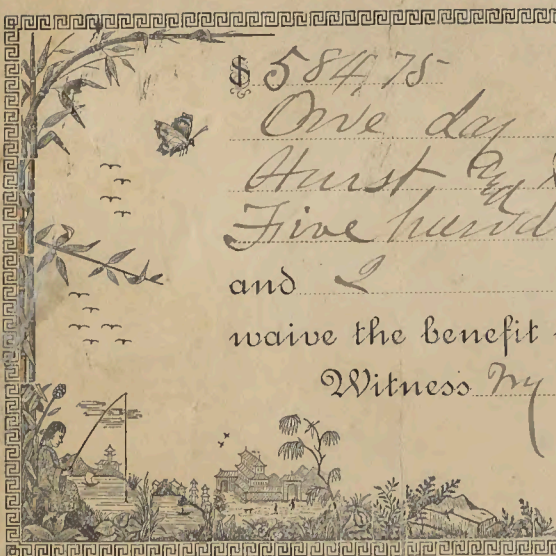 $584,75
One day
Hurst
Five hund
and I
waive the benefit
Witness my